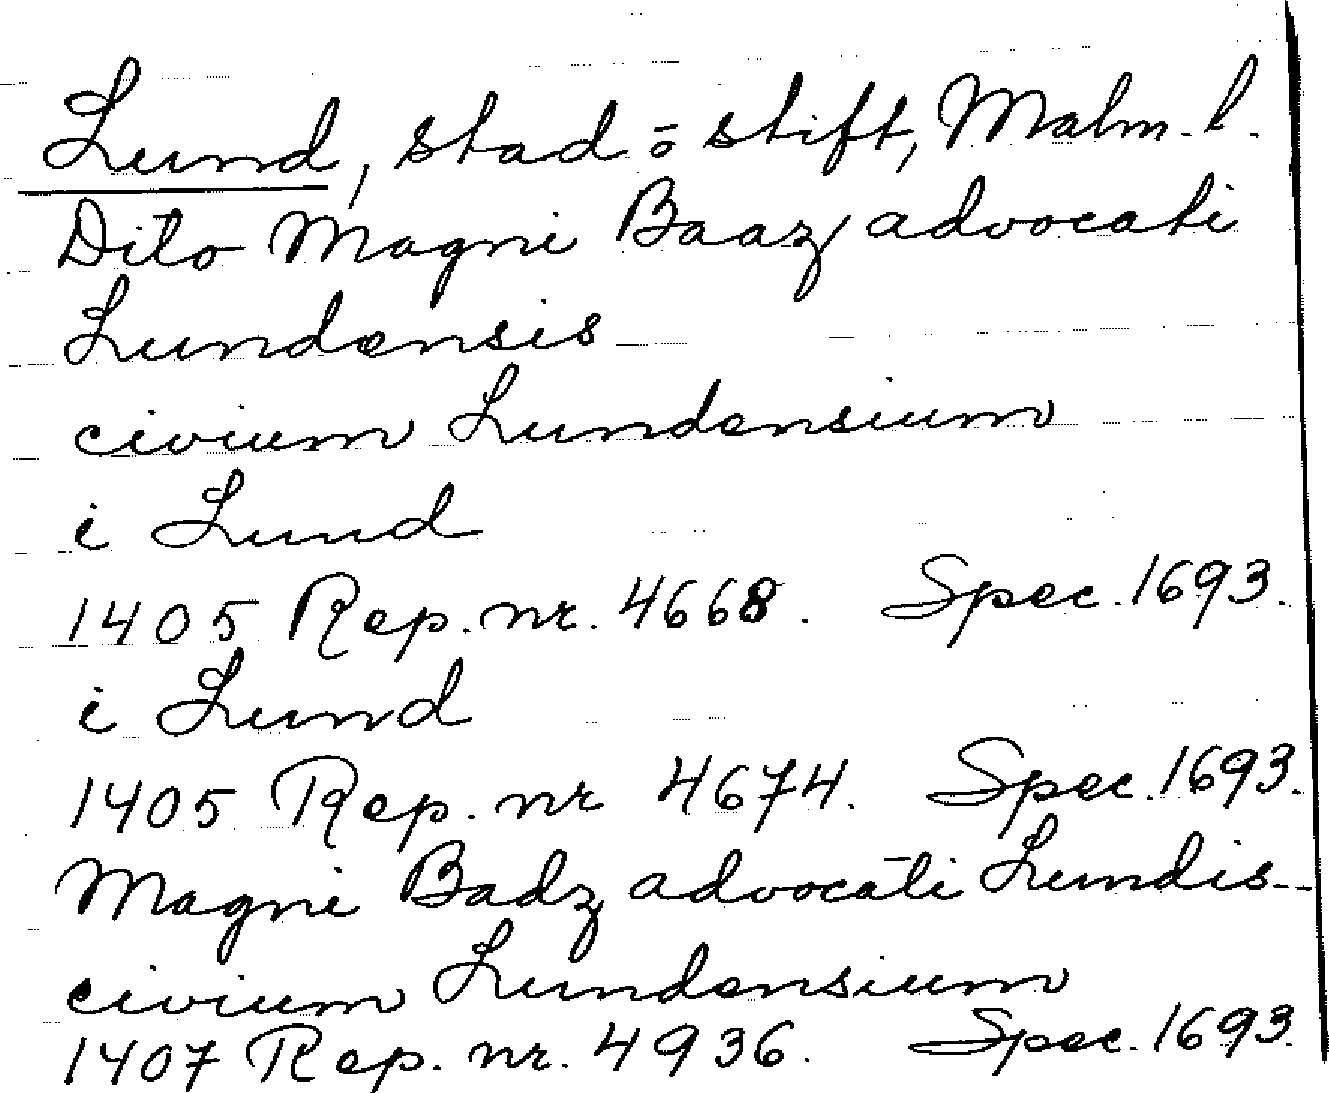 Lund, stad o. stift, Malm. l.
Dito Magni Baaz advocati
Lundensis
civium Lundensium
i Lund
1405 Rep. nr. 4668. Spec. 1693.
i Lund
1405 Rep. nr 4674. Spec. 1693.
Magni Badz advocati Lundis
civium Lundensium
1407 Rep. nr. 4936. Spec. 1693.